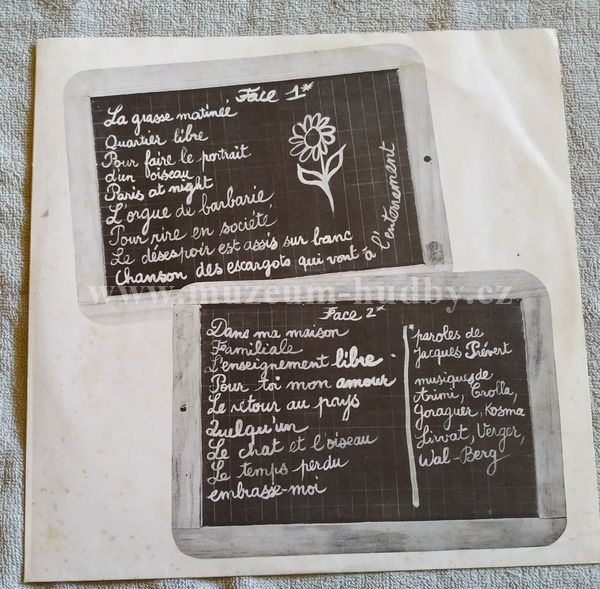 Face 1*
La grasse matineé
Quartier libre
Pour faire le portrait
d'un oiseau
Paris at night
L'orgue de barbarie
Pour rire en societé
Le désespoir est assis sur banc
Chanson des escargots qui vont à l'enterrement
www.muzeum-hudby.cz
Face 2*
Dans ma maison
Familiale
L'enseignement libre
Pour toi mon amour
Le retour au pays
Quelqu'un
Le chat et l'oiseau
Le temps perdu
embrasse-moi
*paroles de
Jacques Prévert
musiques de
Arimi, Crolla,
Goraguer, Kosma
Lirvat, Verger,
Wal-Berg